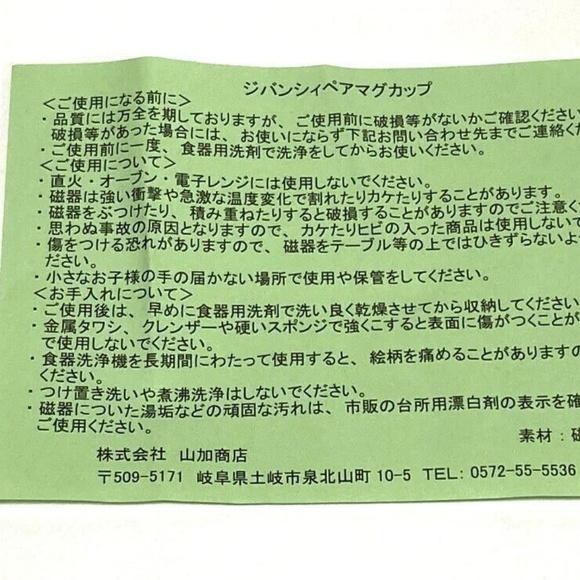 ジバンシィペアマグカップ
＜ご使用になる前に＞
・品質には万全を期しておりますが、ご使用前に破損等がないかご確認ください
破損等があった場合には、お使いにならず下記お問い合わせ先までご連絡くだ
・ご使用前に一度、食器用洗剤で洗浄をしてからお使いください。
＜ご使用について＞
・直火・オーブン・電子レンジには使用しないでください。
・磁器は強い衝撃や急激な温度変化で割れたりカケたりすることがあります。
・磁器をぶつけたり、積み重ねたりすると破損することがありますのでご注意く
・思わぬ事故の原因となりますので、カケたりヒビの入った商品は使用しないで
・傷をつける恐れがありますので、磁器をテーブル等の上ではひきずらないよ
ださい。
・小さなお子様の手の届かない場所で使用や保管をしてください。
＜お手入れについて＞
・ご使用後は、早めに食器用洗剤で洗い良く乾燥させてから収納してください
・金属タワシ、クレンザーや硬いスポンジで強くこすると表面に傷がつくことが
で使用しないでください。
・食器洗浄機を長期間にわたって使用すると、絵柄を痛めることがありますの
ください。
・つけ置き洗いや煮沸洗浄はしないでください。
・磁器についた湯垢などの頑固な汚れは、市販の台所用漂白剤の表示を確
ご使用ください。
素材：磁
株式会社 山加商店
〒509-5171 岐阜県土岐市泉北山町 10-5 TEL: 0572-55-5536